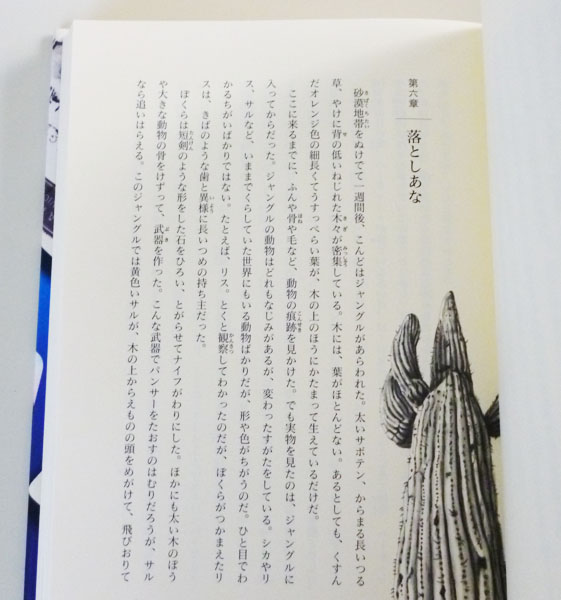 第六章
落としあな
砂漠地帯をぬけでて一週間後、こんどはジャングルがあらわれた。太いサボテン、からまる長いつる
草、やけに背の低いねじれた木々が密集している。木には、葉がほとんどない。あるとしても、くすん
だオレンジ色の細長くてうすっぺらい葉が、木の上のほうにかたまって生えているだけだ。
ここに来るまでに、ふんや骨や毛など、動物の痕跡を見かけた。でも実物を見たのは、ジャングルに
入ってからだった。ジャングルの動物はどれもなじみがあるが、変わったすがたをしている。シカやリ
ス、サルなど、いままでくらしていた世界にもいる動物ばかりだが、形や色がちがうのだ。ひと目でわ
かるちがいばかりではない。たとえば、リス。とくと観察してわかったのだが、ぼくらがつかまえたリ
スは、きばのような歯と異様に長いつめの持ち主だった。
ぼくらは短剣のような形をした石をひろい、とがらせてナイフがわりにした。ほかにも太い木のぼう
や大きな動物の骨をけずって、武器を作った。こんな武器でパンサーをたおすのはむりだろうが、サル
なら追いはらえる。このジャングルでは黄色いサルが、木の上からえものの頭をめがけて、飛びおりて